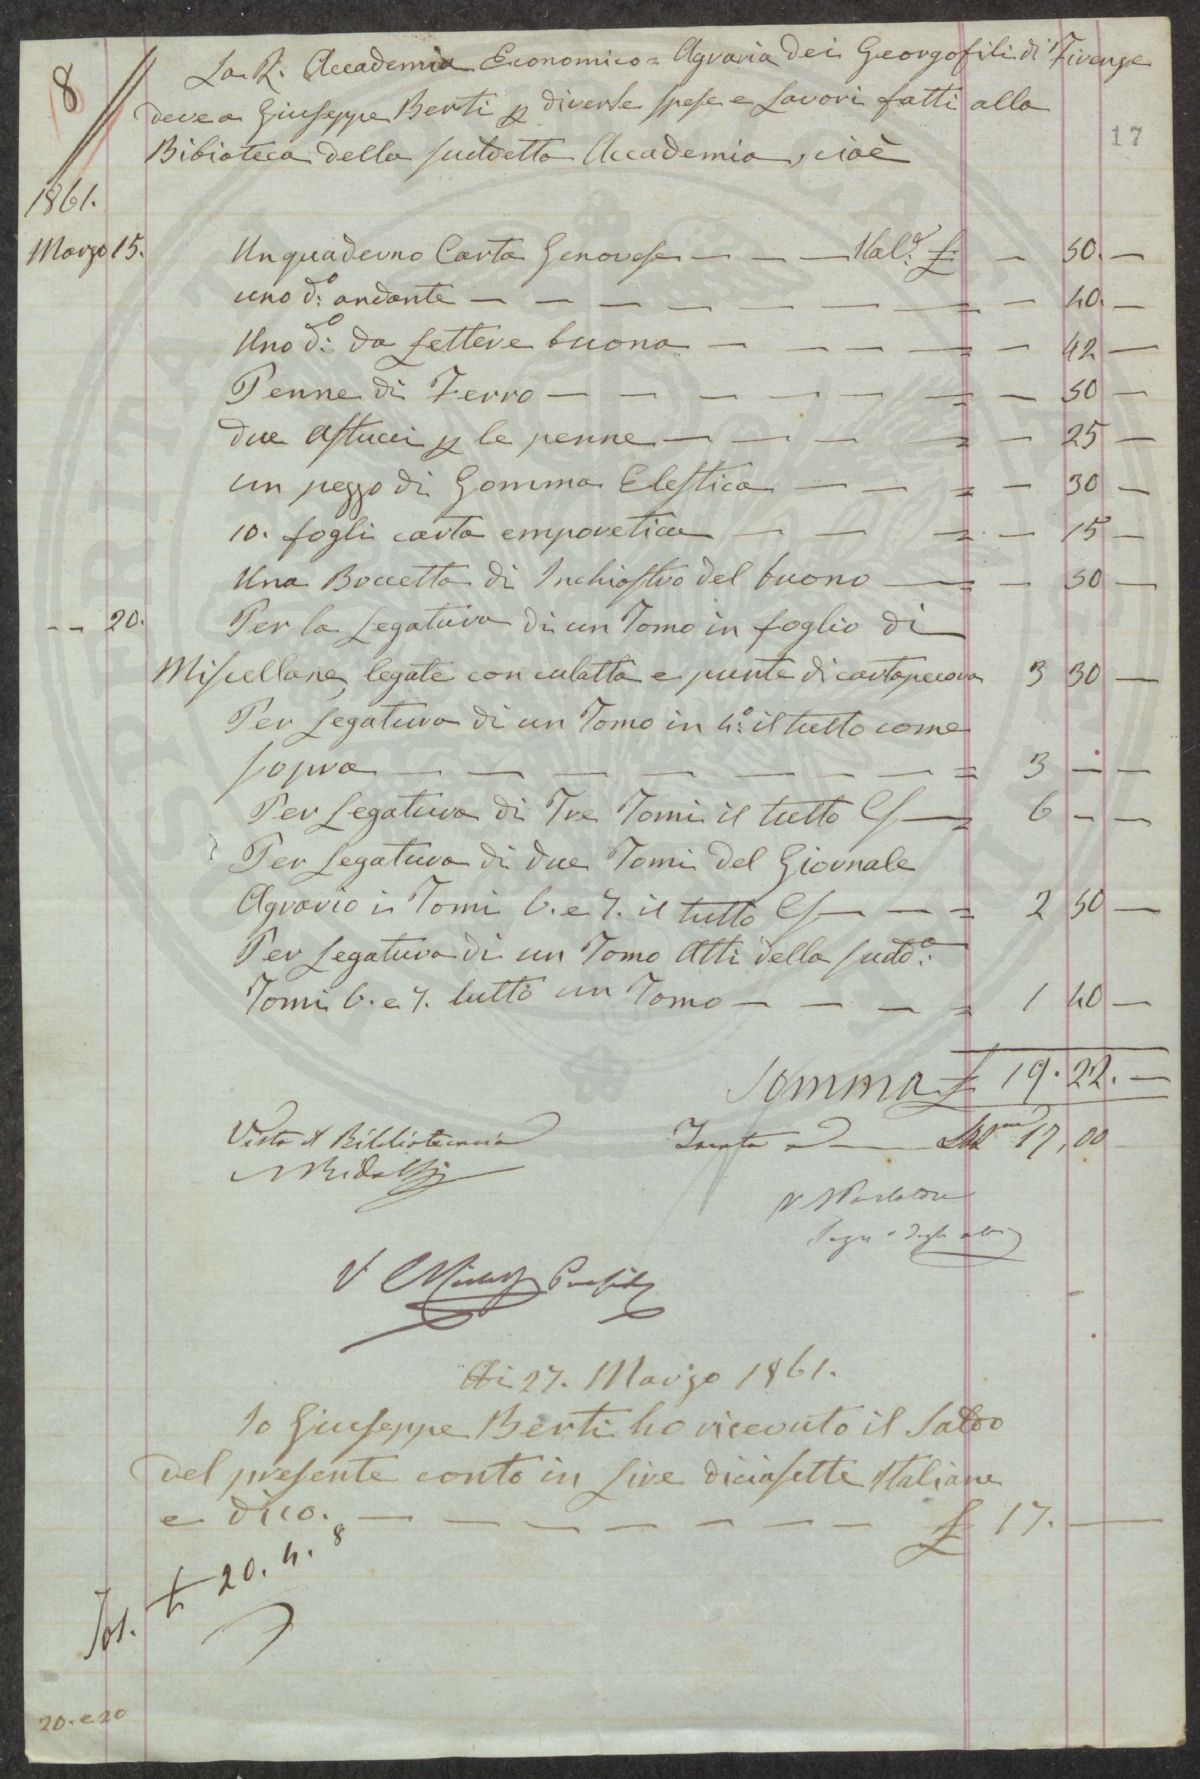 8
17
La R. Accademia Economico=Agraria dei Georgofili di Firenze
deve a Giuseppe Berti p diverse spese e lavori fatti alla
Bibioteca della suddetta Accademia, cioè
1861.
Marzo 15. Un quaderno Carta Genovese — — — Ital.e £ — 50. —
uno d.o andante — — — — — — — — = — 40. —
Uno d.o da Lettere buona — — — — — = — 42 —
Penne di Ferro — — — — — — — = — 50 —
due astucci p le penne — — — — = — 25 —
un pezzo di Gomma Elestica — — — = — 30 —
10. fogli carta emporetica — — — = — 15 —
Una Boccetta di Inchiostro del buono — = — 50 —
-- 20. Per la Legatura di un Tomo in foglio di
Miscellane, legate con culatta e punte di cartapecora 3 30 —
Per Legatura di un Tomo in 4.o il tutto come
sopra — — — — — — — — = 3 — —
Per Legatura di Tre Tomi il tutto — = 6 — —
Per Legatura di due Tomi del Giornale
Agrario i Tomi 6. e 7. il tutto — — = 2 50 —
Per Legatura di un Tomo Atti della sudd.a
Tomi 6. e 7. tutto un Tomo — — — — = 1 40 —
Somma £ 19. 22. —
Visto Il Bibliotecario
Tarata a — 17,00
V
Di 27. Marzo 1861.
Io Giuseppe Berti ho ricevuto il Saldo
del presente conto in Lire diciasette Italiane
e dico. — — — — — — — — £ 17. —
Tos. £ 20. 4. 8
20. e 20